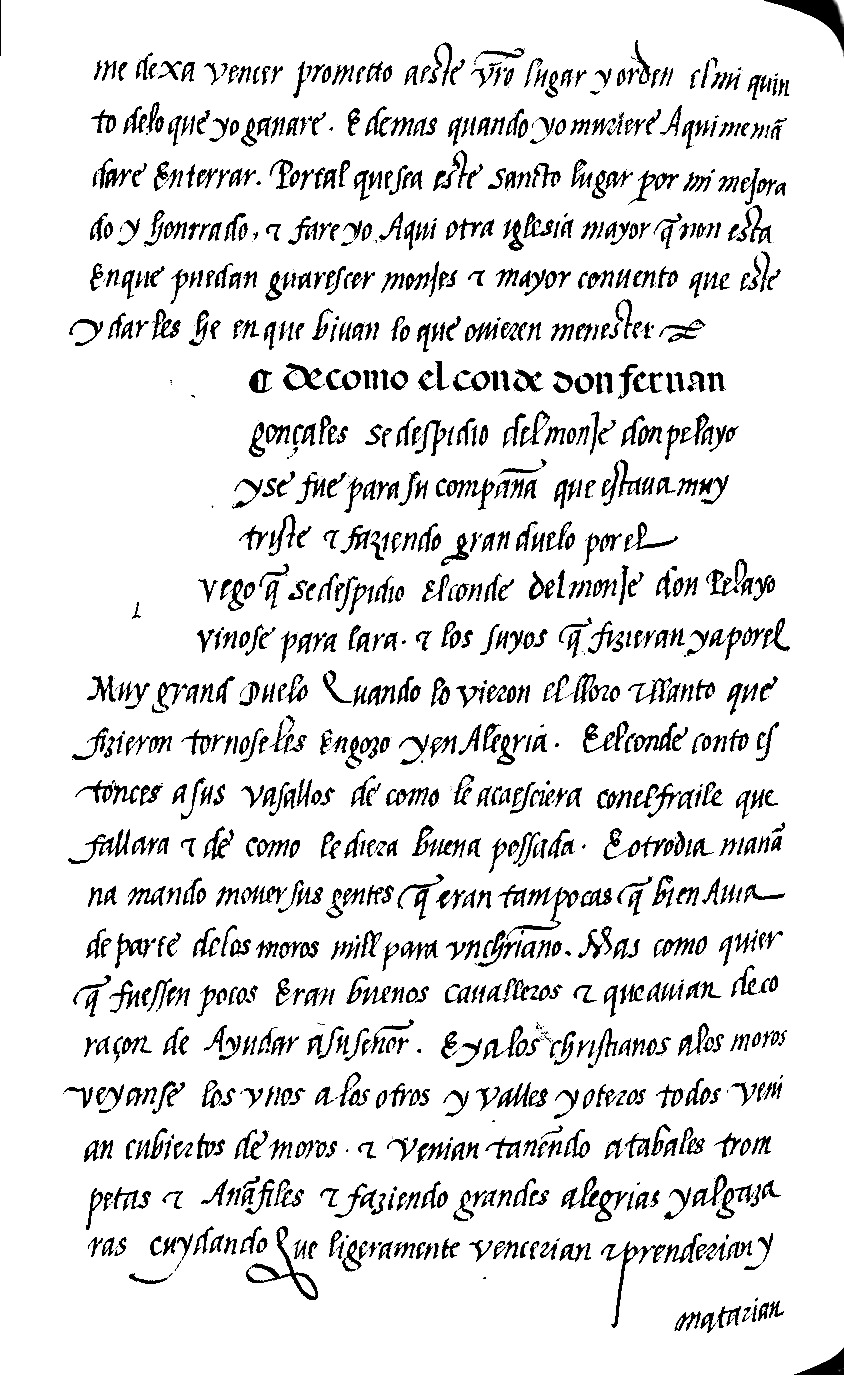 me dexa vencer prometto aeste vr̃o lugar y orden el mi quin
to delo que yo ganare. E demas quando yo muriere Aqui me mã
dare Enterrar. Portal que sea este sancto lugar por mi mejora
do y honrrado, τ fare yo Aqui otra iglesia mayor q̃ non esta
Enque puedan guarescer monjes τ mayor conuento que este
y dar les he en que biuan lo que ouieren menester
¶ De como el conde don fernan
gonçales se despidio del monje don pelayo
y se fue para su compan̄a que estaua muy
triste τ faziendo gran duelo por el
L
vego q̃ se despidio El conde del monje don Pelayo
vinose para lara. τ los suyos q̃ fizieran ya porel
Muy grand Duelo Quando lo vieron el lloro τ llanto que
fizieron tornoseles Engozo y en Alegria. E el conde conto es
tonces asus vasallos de como le acaesciera conel fraile que
fallara τ de como le diera buena possada. E otro dia manã
na mando mouer sus gentes q̃ eran tam pocas q̃ bien Auia
de parte delos moros mill para vn chriano. Mas como quier
q̃ fuessen pocos Eran buenos cavalleros τ que auian de co
raçon de Ayudar asu señor. E ya los christianos alos moros
veyanse los vnos a los otros y valles y oteros todos veni
an cubiertos de moros. τ venian tanendo atabales trom
petas τ Anãfiles τ faziendo grandes alegrias y algaza
ras cuydando Que ligeramente vencerian τ prenderian y
matarian